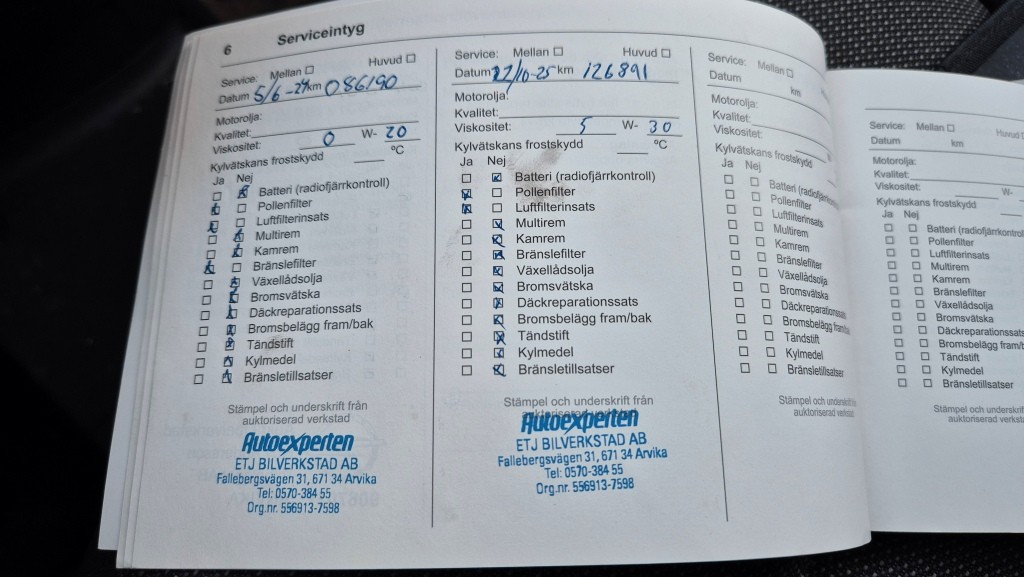 6 Serviceintyg
Service: Mellan ☐ Huvud ☐
Datum 5/6-24 km 086190
Motorolja:
Kvalitet:
Viskositet: 0 W- 20
Kylvätskans frostskydd °C
Ja Nej
Batteri (radiofjärrkontroll)
Pollenfilter
Luftfilterinsats
Multirem
Kamrem
Bränslefilter
Växellådsolja
Bromsvätska
Däckreparationssats
Bromsbelägg fram/bak
Tändstift
Kylmedel
Bränsletillsatser
Stämpel och underskrift från
auktoriserad verkstad
Autoexperten
ETJ BILVERKSTAD AB
Fallebergsvägen 31, 671 34 Arvika
Tel: 0570-384 55
Org.nr. 556913-7598
Service: Mellan ☐ Huvud ☐
Datum 27/10-25 km 126891
Motorolja:
Kvalitet:
Viskositet: 5 W- 30
Kylvätskans frostskydd °C
Ja Nej
Batteri (radiofjärrkontroll)
Pollenfilter
Luftfilterinsats
Multirem
Kamrem
Bränslefilter
Växellådsolja
Bromsvätska
Däckreparationssats
Bromsbelägg fram/bak
Tändstift
Kylmedel
Bränsletillsatser
Stämpel och underskrift från
auktoriserad verkstad
Autoexperten
ETJ BILVERKSTAD AB
Fallebergsvägen 31, 671 34 Arvika
Tel: 0570-384 55
Org.nr. 556913-7598
Service: Mellan ☐
Datum km
Motorolja:
Kvalitet:
Viskositet:
Kylvätskans frostskydd
Ja Nej
Batteri
Pollenfilter
Luftfilterinsats
Multirem
Kamrem
Bränslefilter
Växellådsolja
Bromsvätska
Däckreparationssats
Bromsbelägg
Tändstift
Kylmedel
Bränsletillsatser
Stämpel och underskrift från
auktoriserad verkstad
Service: Mellan ☐ Huvud
Datum km
Motorolja:
Kvalitet:
Viskositet: W-
Kylvätskans frostskydd
Ja Nej
Batteri
Pollenfilter
Luftfilterinsats
Multirem
Kamrem
Bränslefilter
Växellådsolja
Bromsvätska
Däckreparationssats
Bromsbelägg
Tändstift
Kylmedel
Bränsletillsatser
Stämpel och
auktoriserad